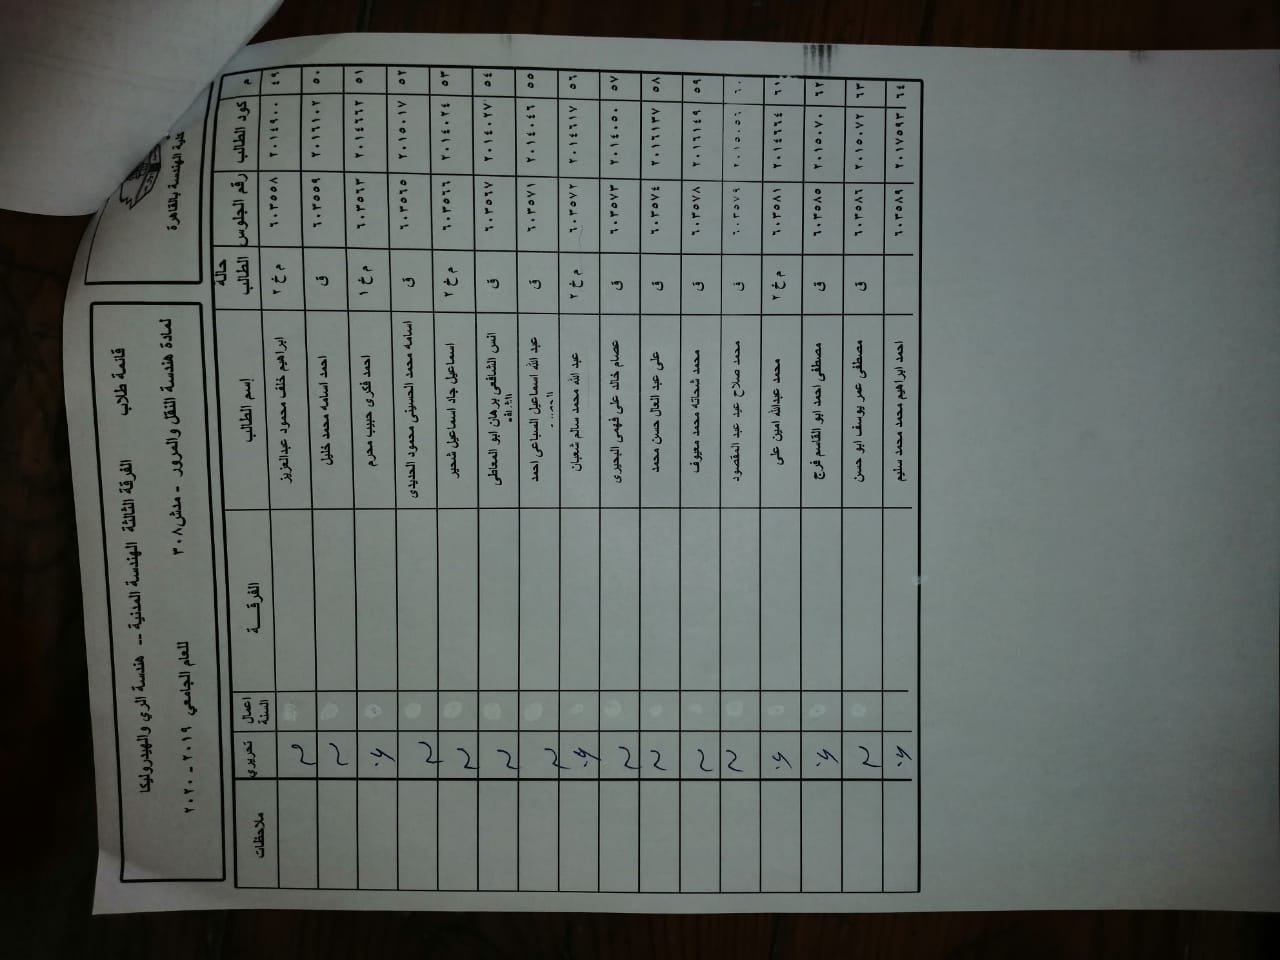 كلية الهندسة بالقاهرة
قائمة طلاب الفرقة الثالثة الهندسة المدنية -- هندسة الري والهيدروليكا
لمادة هندسة النقل والمرور - مدش٣٠٨ للعام الجامعي ٢٠١٩ - ٢٠٢٠
م كود الطالب رقم الجلوس حالة الطالب إسم الطالب الفرقـــة اعمال السنة تحريري ملاحظات
٤٩ ٢٠١٤٩٠٠ ٦٠٣٥٥٨ م خ ٢ ابراهيم خلف محمود عبدالعزيز
٥٠ ٢٠١٦١٠٢ ٦٠٣٥٥٩ ق احمد اسامه محمد خليل
٥١ ٢٠١٤٦٦٢ ٦٠٣٥٦٣ م خ ١ احمد فكرى حبيب محرم
٥٢ ٢٠١٥٠١٧ ٦٠٣٥٦٥ ق اسامه محمد الحسينى محمود الحديدى
٥٣ ٢٠١٤٠٢٤ ٦٠٣٥٦٦ م خ ٢ اسماعيل جاد اسماعيل شحير
٥٤ ٢٠١٤٠٢٧ ٦٠٣٥٦٧ ق انس الشافعى برهان ابو المعاطى
٥٥ ٢٠١٤٠٤٦ ٦٠٣٥٧١ ق عبد الله اسماعيل السباعى احمد
٥٦ ٢٠١٤٦١٧ ٦٠٣٥٧٢ م خ ٢ عبد الله محمد سالم شعبان
٥٧ ٢٠١٤٠٥٠ ٦٠٣٥٧٣ ق عصام خالد على فهمى البحيرى
٥٨ ٢٠١٦١٣٧ ٦٠٣٥٧٤ ق على عبد العال حسن محمد
٥٩ ٢٠١٦١٤٩ ٦٠٣٥٧٨ ق محمد شحاته محمد معيوف
٦٠ ٢٠١٥٠٥٦ ٦٠٣٥٧٩ ق محمد صلاح عيد عبد المقصود
٦١ ٢٠١٤٦٦٤ ٦٠٣٥٨١ م خ ٢ محمد عبدالله امين على
٦٢ ٢٠١٥٠٧٠ ٦٠٣٥٨٥ ق مصطفى احمد ابو القاسم فرج
٦٣ ٢٠١٥٠٧٢ ٦٠٣٥٨٦ ق مصطفى عمر يوسف ابو حسن
٦٤ ٢٠١٧٥٩٣ ٦٠٣٥٨٩ احمد ابراهيم محمد محمد سليم